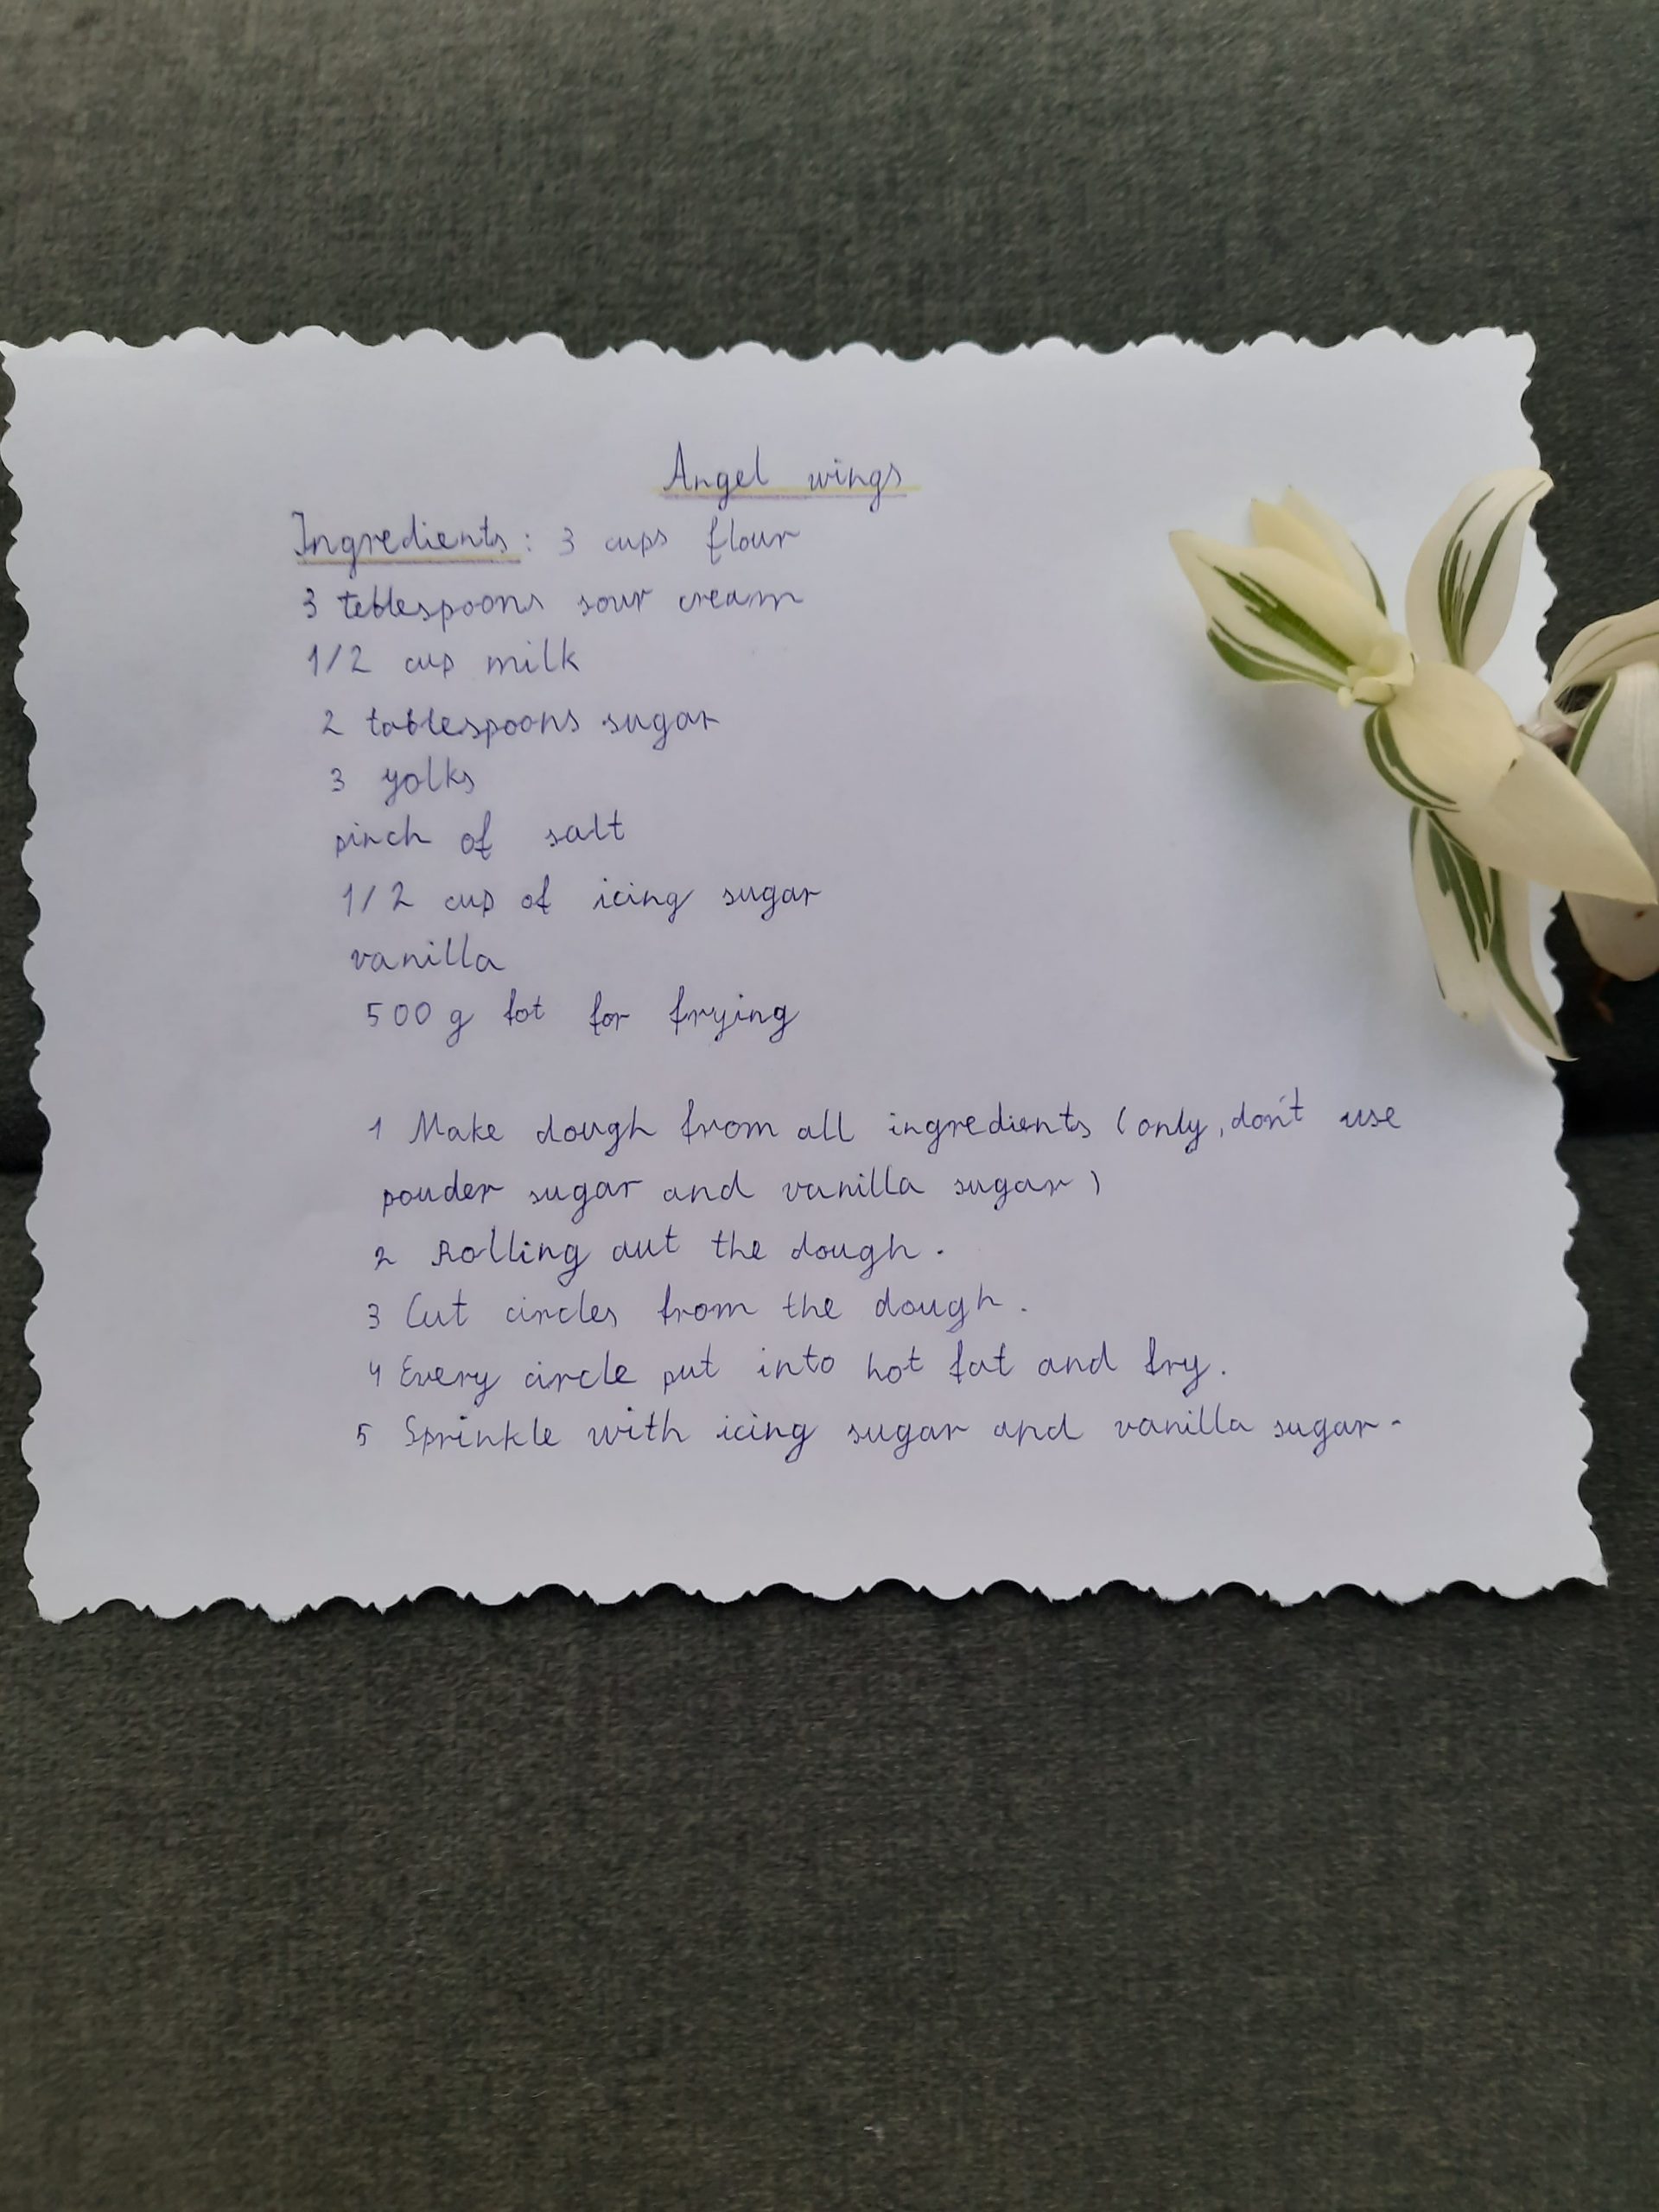 Angel wings
Ingredients: 3 cups flour
3 teblespoons sour cream
1/2 cup milk
2 tablespoons sugar
3 yolks
pinch of salt
1/2 cup of icing sugar
vanilla
500 g fat for frying
1 Make dough from all ingredients (only, don't use
pouder sugar and vanilla sugar)
2 Rolling out the dough.
3 Cut circles from the dough.
4 Every circle put into hot fat and fry.
5 Sprinkle with icing sugar and vanilla sugar.